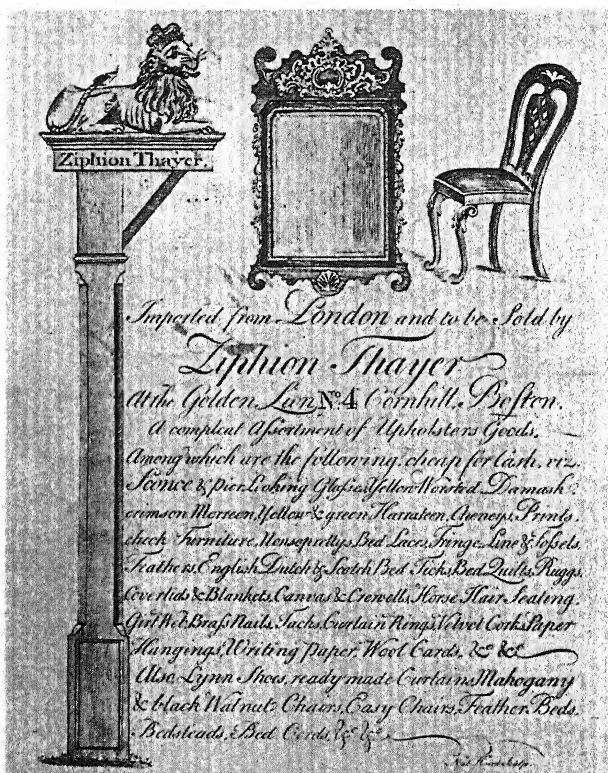 Ziphion Thayer.
Imported from London and to be Sold by
Ziphion Thayer
At the Golden Lion No. 4 Cornhill, Boston.
A compleat Assortment of Upholsters Goods,
Among which are the following, cheap for Cash, viz.
Sconce & pier Looking Glasses, Yellow Worsted Damask
crimson Merreen, Yellow & green Harrateen, Cheneys, Prints,
check Furniture, Bed Laces, Fringe, Line & Tossels,
Feathers, English Dutch & Scotch Bed Ticks, Bed Quilts, Ruggs,
Coverlids & Blankets, Canvas & Crewells, Horse Hair Seating,
Girt Web, Brass Nails, Tacks, Curtain Rings, Velvet Corks, Paper
Hangings, Writing paper, Wool Cards, &c &c
Also Lynn Shoes, ready made Curtains, Mahogany
& black Walnut Chairs, Easy Chairs, Feather Beds,
Bedsteads, Bed Cords, &c &c